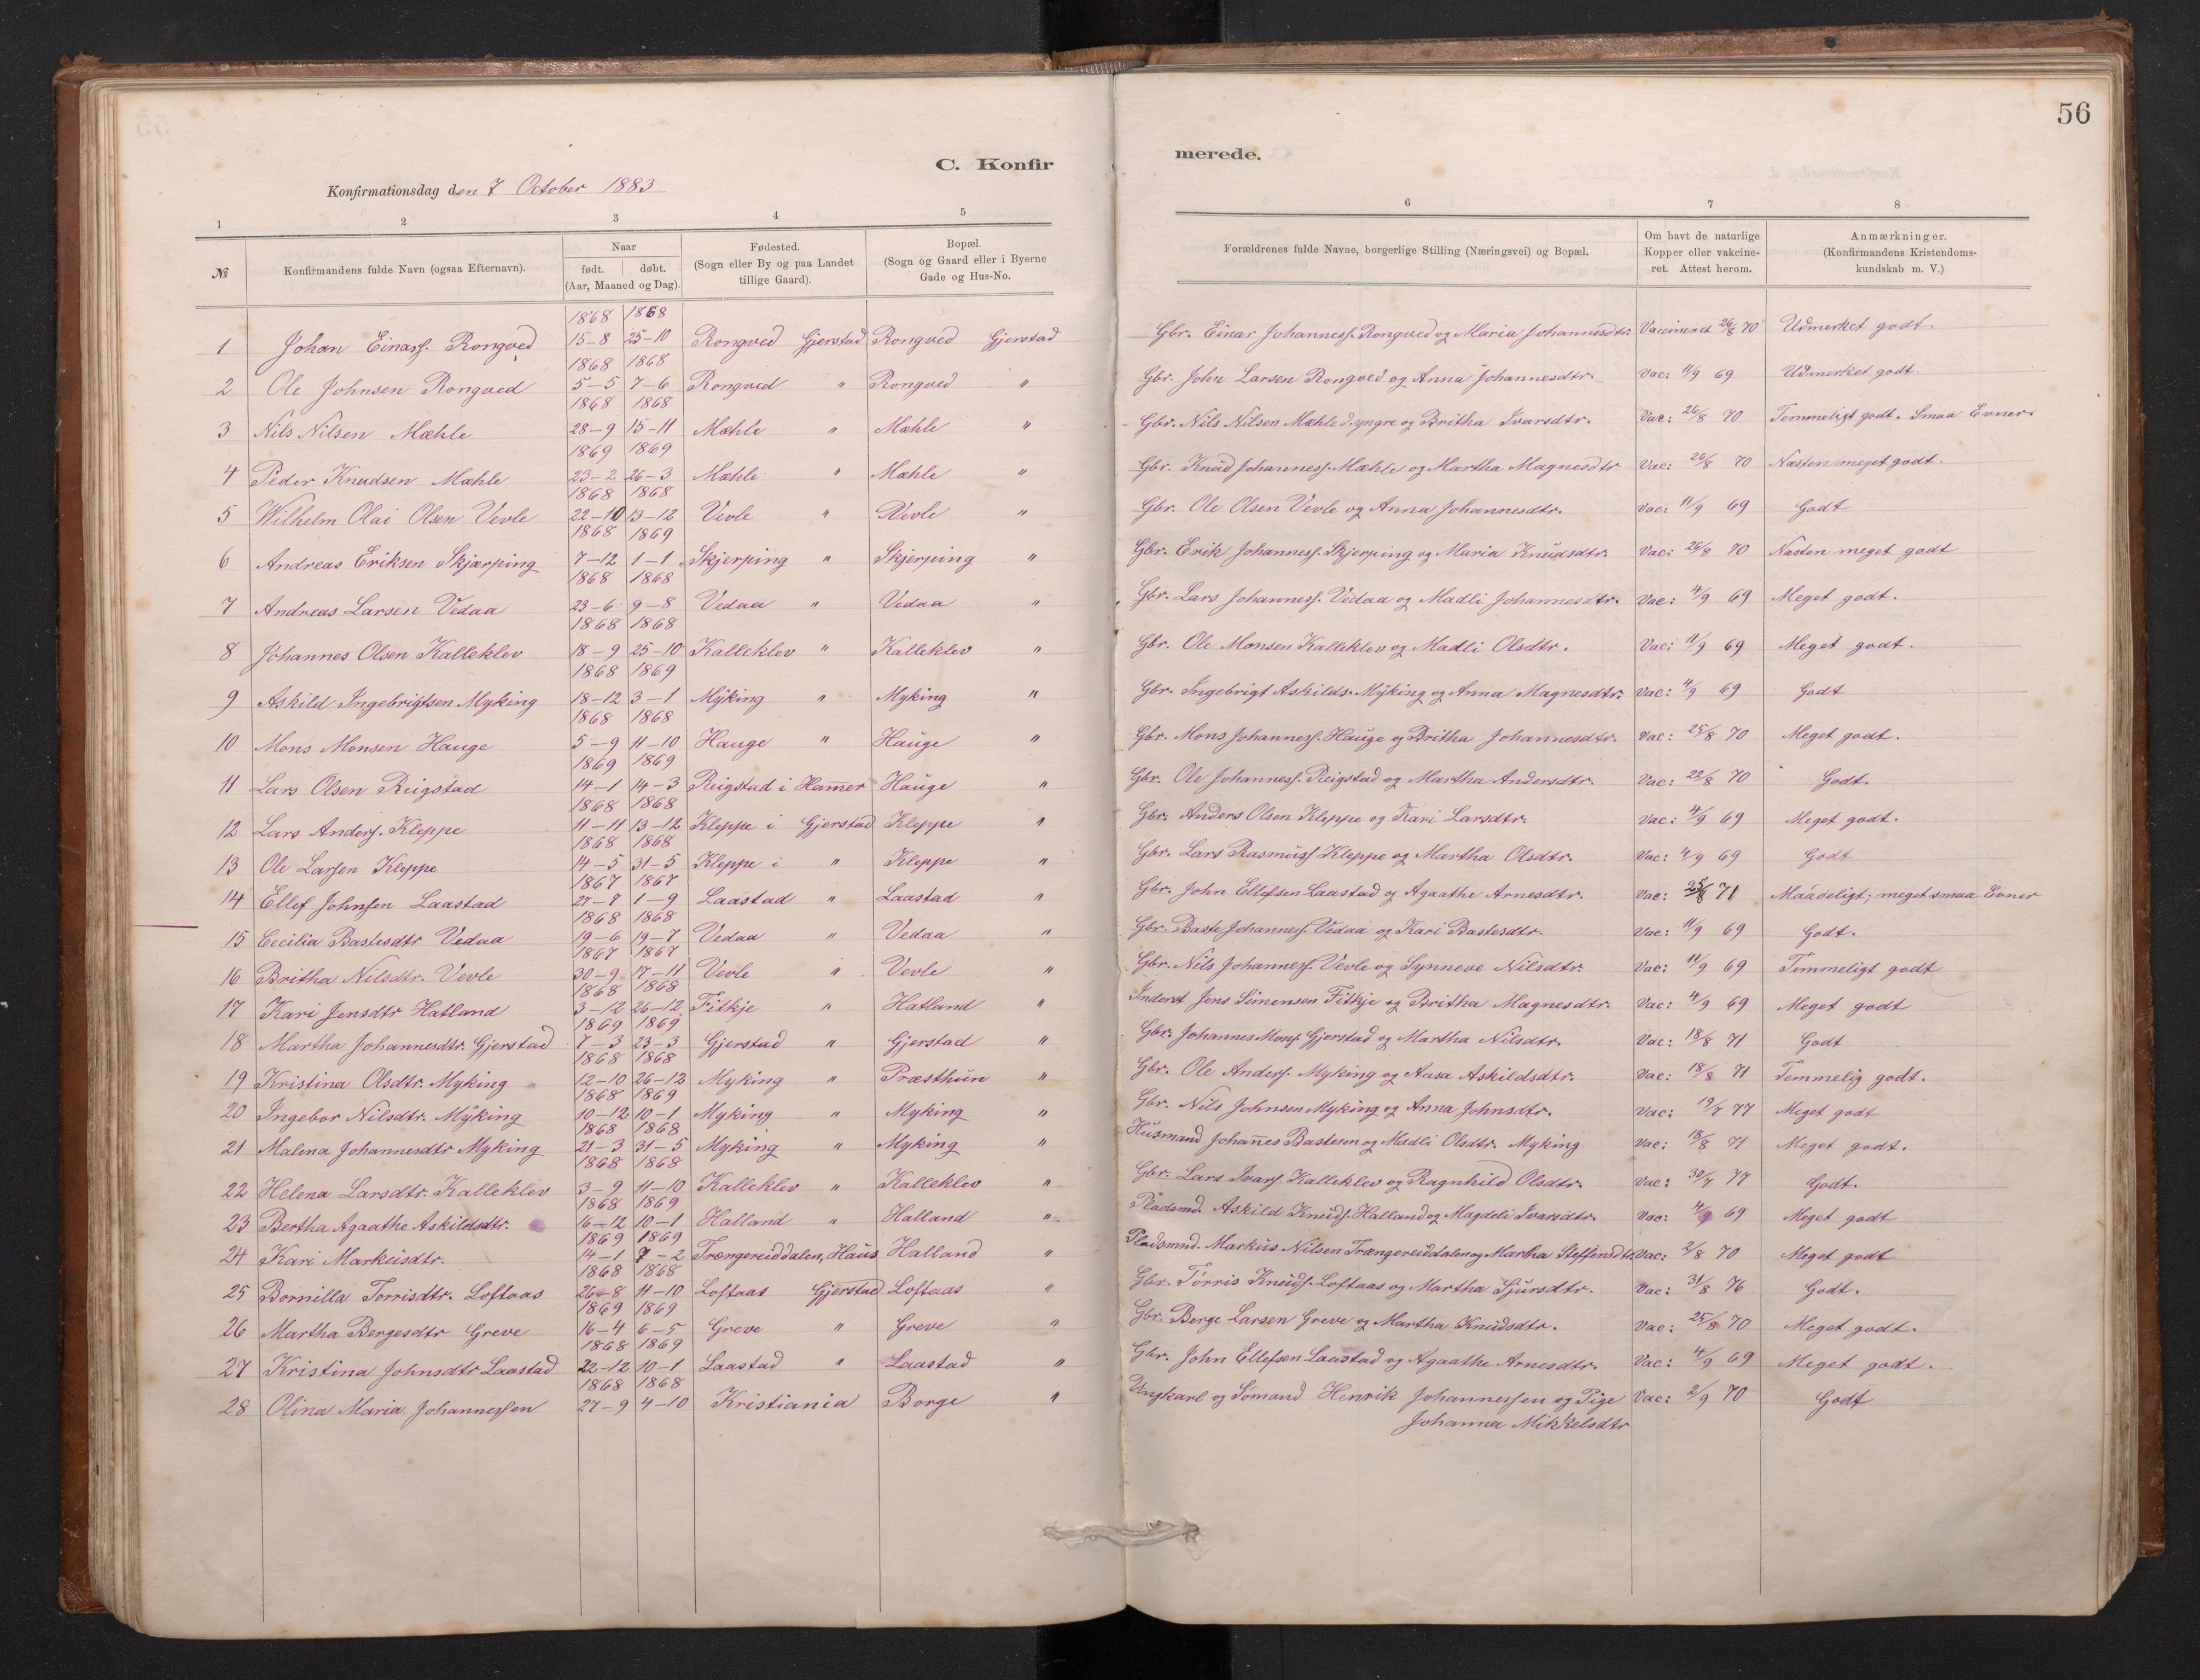 56
C. Konfir merede.
Konfirmationsdag den 7 October 1883
1 2 3 4 5 6 7 8
№ Konfirmandens fulde Navn (ogsaa Efternavn). Naar født. døbt. (Aar, Maaned og Dag). Fødested. (Sogn eller By og paa Landet tillige Gaard). Bopæl. (Sogn og Gaard eller i Byerne Gade og Hus-No. Forældrenes fulde Navne, borgerlige Stilling (Næringsvei) og Bopæl. Om havt de naturlige Kopper eller vakcineret. Attest herom. Anmærkninger. (Konfirmandens Kristendomskundskab m. V.)
1 Johan Einarss. Rongved 1868 15-8 1868 25-10 Rongved Gjerstad Rongved Gjerstad Gbr. Einar Johanness. Rongved og Maria Johannesdtr. Vaccineret 26/8 70 Udmerket godt.
2 Ole Johnsen Rongved 1868 5-5 1868 7-6 Rongved " Rongved " Gbr. John Larsen Rongved og Anna Johannesdtr. Vac: 11/9 69 Udmerket godt.
3 Nils Nilsen Mæhle 1868 28-9 1868 15-11 Mæhle " Mæhle " Gbr. Nils Nilsen Mæhle d. yngre og Britha Ivarsdtr. Vac: 26/8 70 Temmeligt godt. Smaa Evner.
4 Peder Knudsen Mæhle 1869 23-2 1869 26-3 Mæhle " Mæhle " Gbr. Knud Johanness. Mæhle og Martha Magnesdtr Vac: 26/8 70 Næsten meget godt.
5 Wilhelm Olai Olsen Vevle 1868 22-10 1868 13-12 Vevle " Vevle " Gbr. Ole Olsen Vevle og Anna Johannesdtr. Vac: 11/9 69 Godt
6 Andreas Eriksen Skjærping 1868 7-12 1869 1-1 Skjerping " Skjerping " Gbr. Erik Johanness. Skjerping og Maria Knudsdtr. Vac: 26/8 70 Næsten meget godt
7 Andreas Larsen Vedaa 1868 23-6 1868 9-8 Vedaa " Vedaa " Gbr. Lars Johanness. Vedaa og Madli Johannesdtr. Vac: 4/9 69 Meget godt.
8 Johannes Olsen Kalleklev 1868 18-9 1868 25-10 Kalleklev " Kalleklev " Gbr. Ole Monsen Kalleklev og Madli Olsdtr. Vac: 11/9 69 Meget godt.
9 Askild Ingebrigtsen Myking 1868 18-12 1869 3-1 Myking " Myking " Gbr. Ingebrigt Askilds. Myking og Anna Magnesdtr. Vac: 4/9 69 Godt
10 Mons Monsen Hauge 1868 5-9 1868 11-10 Hauge " Hauge " Gbr. Mons Johanness. Hauge og Britha Johannesdtr. Vac: 25/8 70 Meget godt.
11 Lars Olsen Reigstad 1869 14-1 1869 14-3 Reigstad i Hamer Hauge " Gbr. Ole Johanness. Reigstad og Martha Andersdtr. Vac: 22/8 70 Godt.
12 Lars Anderss. Kleppe 1868 11-11 1868 13-12 Kleppe i Gjerstad Kleppe " Gbr. Anders Olsen Kleppe og Kari Larsdtr. Vac: 4/9 69 Meget godt.
13 Ole Larssen Kleppe 1868 14-5 1868 31-5 Kleppe i " Kleppe " Gbr. Lars Rasmuss Kleppe og Martha Olsdtr. Vac: 4/9 69 Godt
14 Ellef Johnssen Laastad 1867 27-7 1867 1-9 Laastad " Laastad " Gbr. John Ellefsen Laastad og Agaathe Arnesdtr. Vac: 71 Maadeligt; meget smaa Evner
15 Cecilia Bastesdtr Vedaa 1868 19-6 1868 19-7 Vedaa " Vedaa " Gbr. Baste Johanness. Vedaa og Kari Bastesdtr. Vac: 11/9 69 Godt.
16 Britha Nilsdtr. Vevle 1867 30-9 1867 17-11 Vevle " Vevle " Gbr. Nils Johanness. Vevle og Synneve Nilsdtr. Vac: 11/9 69 Temmeligt godt
17 Kari Jensdtr Hatland 1868 3-12 1868 26-12 Fitkje " Hatland " Inderst Jens Simensen Fitkje og Britha Magnesdtr. Vac: 4/9 69 Meget godt
18 Martha Johannesdtr. Gjerstad 1869 7-3 1869 23-3 Gjerstad " Gjerstad " Gbr. Johannes Monss. Gjerstad og Martha Nilsdtr. Vac: 18/8 71 Godt
19 Kristina Olsdtr. Myking 1868 12-10 1868 26-12 Myking " Præsthun " Gbr. Ole Anderss. Myking og Aasa Askildsdtr. Vac: 18/8 71 Temmelig godt.
20 Ingebor Nilsdtr. Myking 1868 10-12 1869 10-1 Myking " Myking " Gbr. Nils Johnsen Myking og Anna Johnsdtr. Vac: 19/7 77 Meget godt
21 Malena Johannesdtr Myking 1868 21-3 1868 31-5 Myking " Myking " Husmand Johanes Bastesen og Madli Olsdtr. Myking Vac: 18/8 71 Meget godt.
22 Helena Larsdtr. Kalleklev 1868 3-9 1868 11-10 Kalleklev " Kalleklev " Gbr. Lars Ivarss. Kalleklev og Ragnhild Olsdtr. Vac: 30/7 77 Godt.
23 Bertha Agaathe Askildsdtr. 1868 16-12 1869 10-1 Halland " Halland " Pladsmd. Askild Knuds. Halland og Magdeli Ivarsdtr. Vac: 4/9 69 Meget godt
24 Kari Markusdtr. 1869 14-1 1869 7-2 Trængereiddalen, Haus Halland " Pladsmnd. Markus Nilsen Trængereiddalen og Martha Steffensdtr Vac: 2/8 70 Meget godt
25 Bornilla Torrisdtr. Loftaas 1868 26-8 1868 11-10 Loftaas Gjerstad Loftaas " Gbr. Tørris Knuds. Loftaas og Martha Sjursdtr. Vac: 31/8 76 Godt.
26 Martha Bergesdtr Greve 1869 16-4 1869 6-5 Greve " Greve " Gbr. Berge Larsen Greve og Martha Knudsdtr. Vac: 25/8 70 Meget godt.
27 Kristina Johnsdtr Laastad 1868 22-12 1869 10-1 Laastad " Laastad " Gbr. John Ellefsen Laastad og Agaathe Arnesdtr. Vac: 4/9 69 Meget godt.
28 Olina Maria Johannessen 1868 27-9 1868 4-10 Kristiania Borge " Ungkarl og Sømand Henrik Johannessen og Pige Vac: 2/9 70 Godt
Johanna Mikkelsdtr